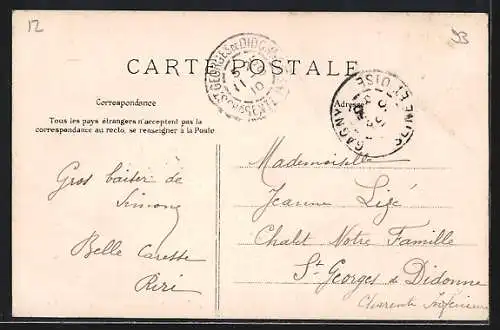 12
93
ST GEORGES DE DIDONNE
11
10
CARTE POSTALE
Correspondance
Tous les pays étrangers n'acceptent pas la
correspondance au recto, se renseigner à la Poste
Adresse
GAGNY
SEINE ET OISE
Gros baiser de
Simone
Belle Caresse
Riri
Mademoiselle
Jeanne Ligé
Chalet Notre Famille
St Georges de Didonne
Charente Inférieure